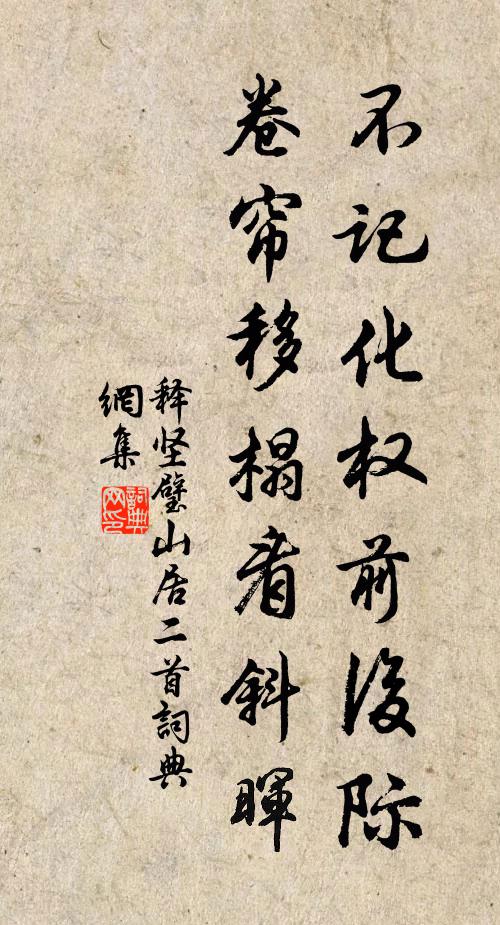 不记化权前後际
卷帘移榻看斜暉
释坚璧山居二首詞典
網集
詞典
网印